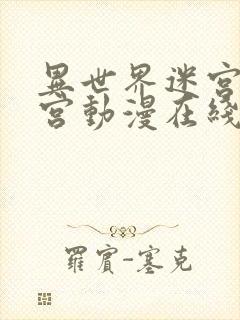 異世界迷宮
宮動漫在綫
羅賓-塞克